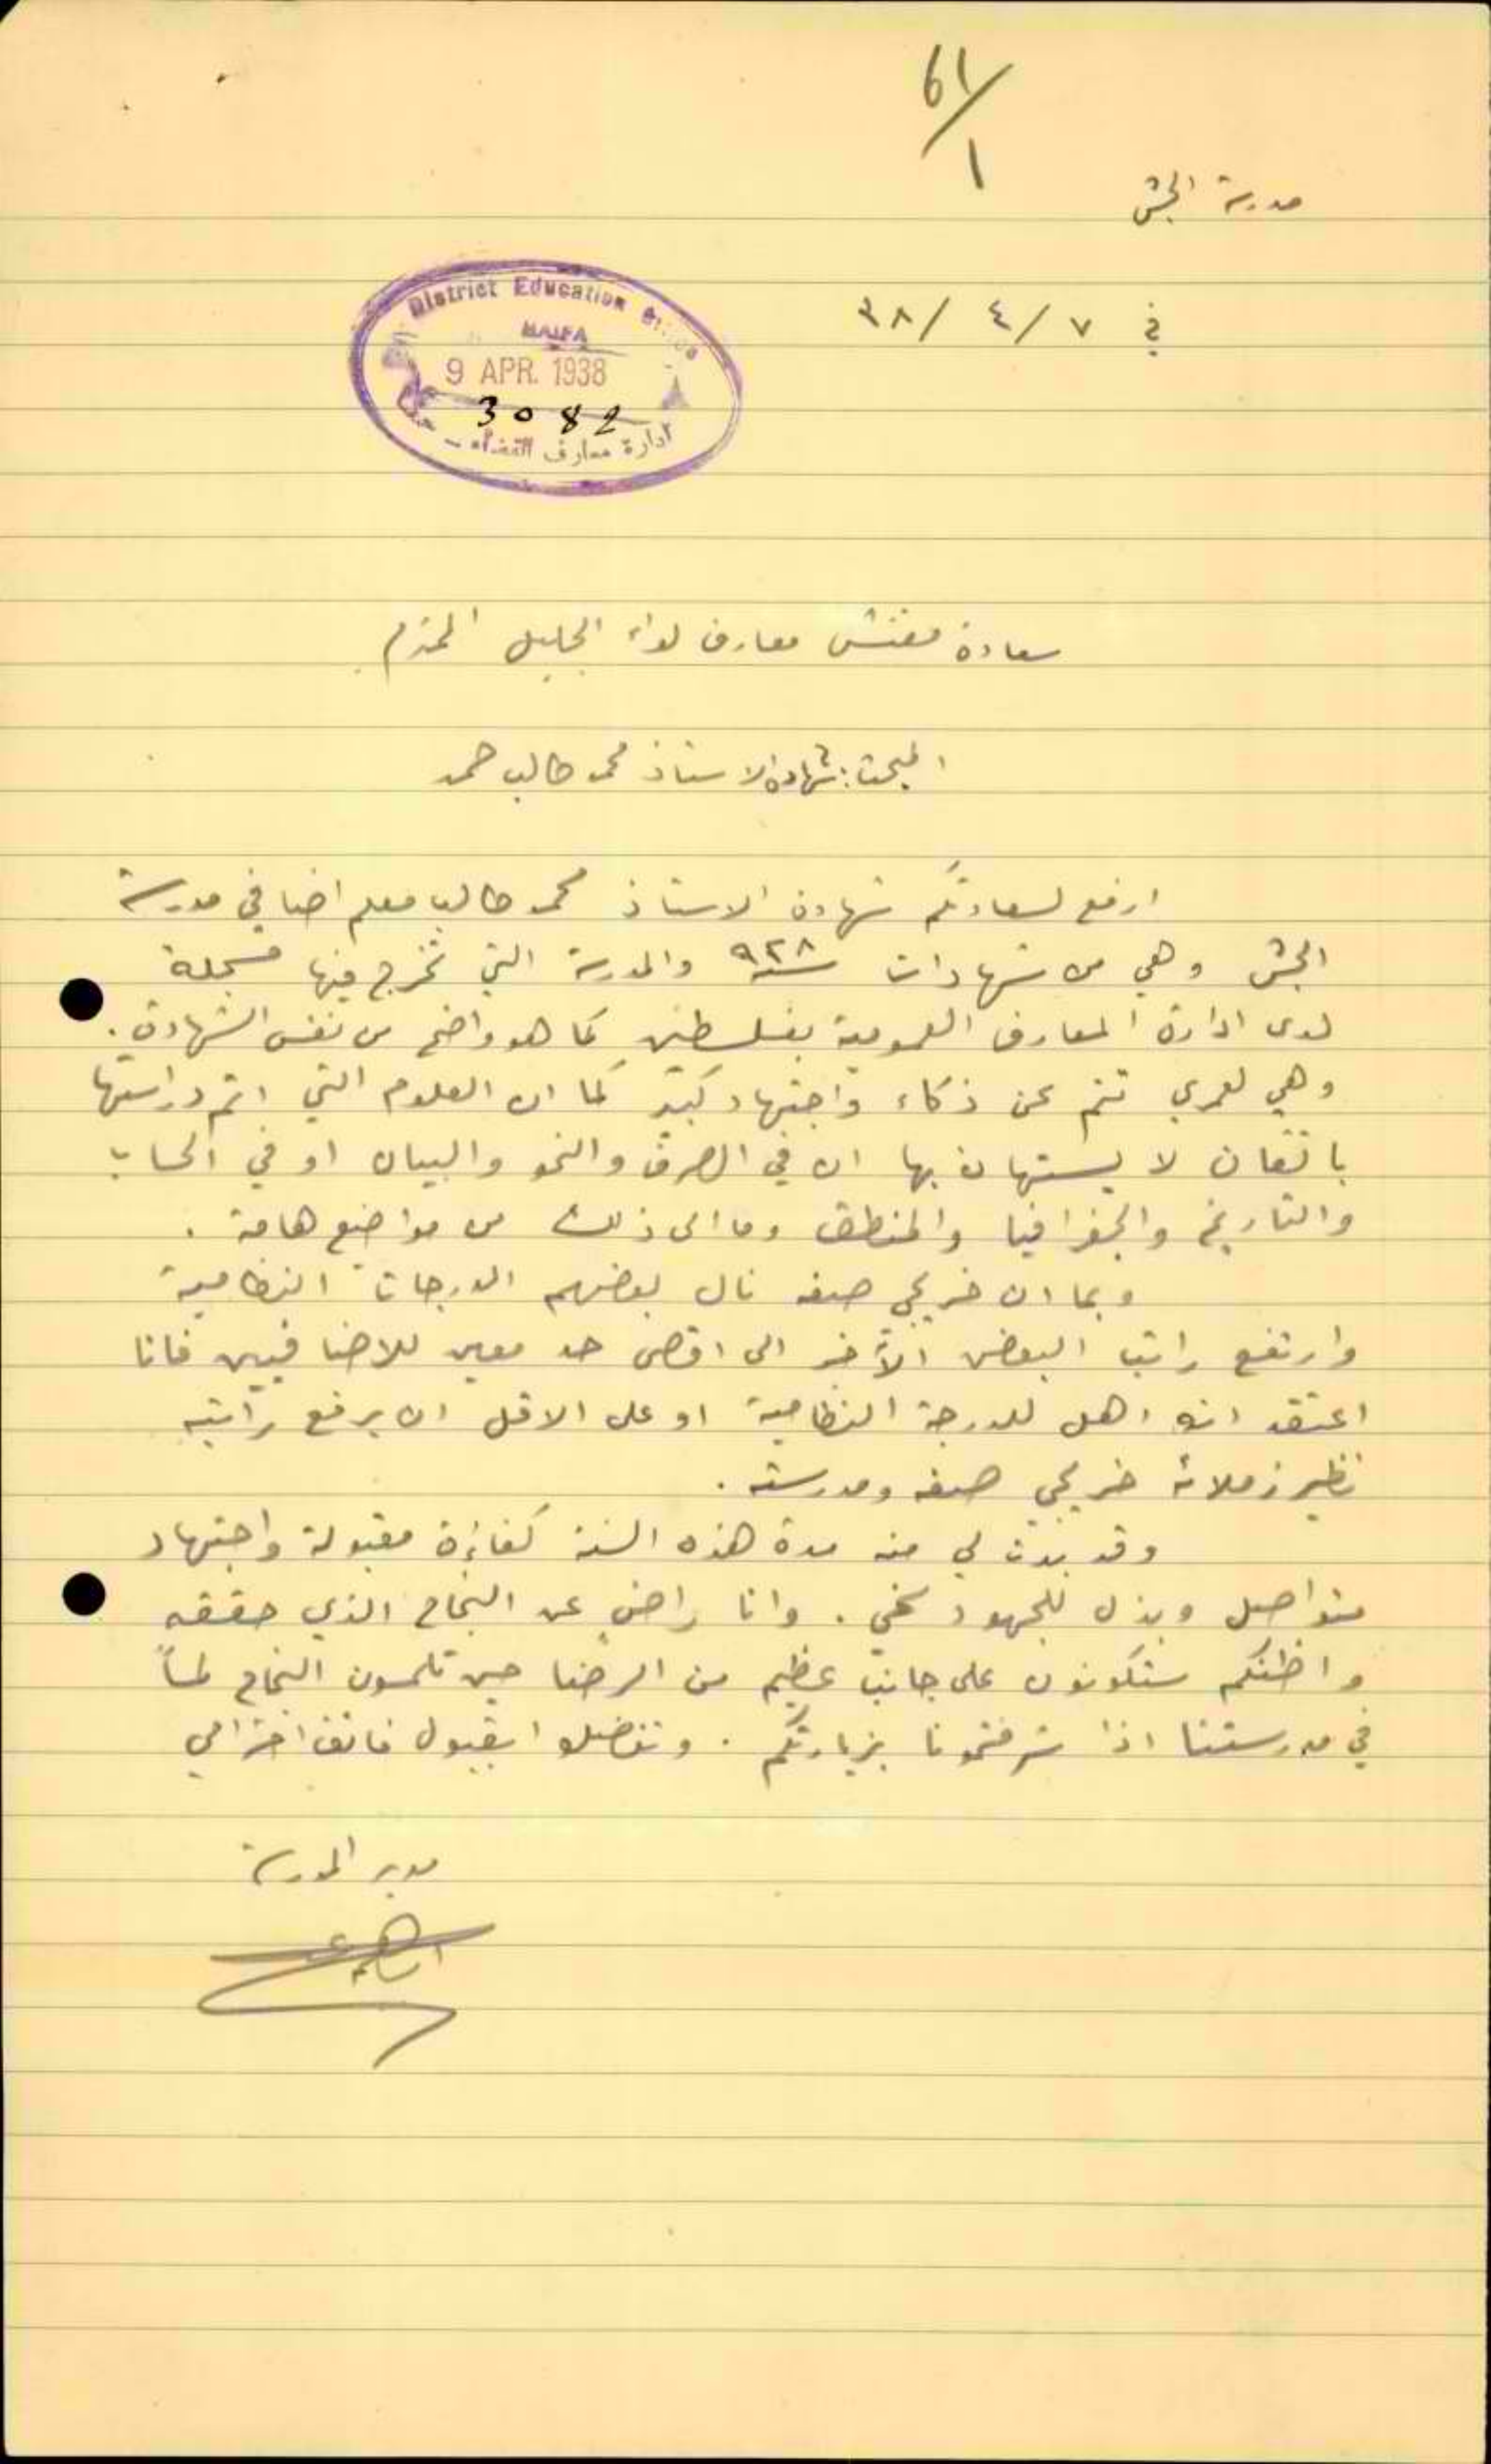 61/1
مدرسة الجش
في ٧ / ٤ / ٣٨
District Education Office
HAIFA
9 APR. 1938
3082
ادارة معارف القضاء - حيفا
سعادة مفتش معارف لواء الجليل المحترم
البحث: شهادة الاستاذ محمد طالب حمد
ارفع لسعادتكم شهادة الاستاذ محمد طالب معلم اضافي في مدرسة
الجش وهي من شهادات سنة ٩٢٨ والمدرسة التي تخرج فيها مسجلة
لدى ادارة المعارف العمومية بفلسطين كما هو واضح من نفس الشهادة.
وهي لعمري تنم عن ذكاء واجتهاد كبير كما ان العلوم التي اتم دراستها
باتقان لا يستهان بها ان في الصرف والنحو والبيان او في الحساب
والتاريخ والجغرافيا والمنطق وما الى ذلك من مواضيع هامة .
وبما ان خريجي صفه نال بعضهم الدرجات النظامية
وارتفع راتب البعض الآخر الى اقصى حد معين للاضافيين فانا
اعتقد انه اهل للدرجة النظامية او على الاقل ان يرفع راتبه
نظير زملائه خريجي صفه ومدرسته .
وقد بدت لي منه مدة هذه السنة كفاءة مقبولة واجتهاد
متواصل وبذل للجهود سخي . وانا راضٍ عن النجاح الذي حققه
واظنكم ستكونون على جانب عظيم من الرضا حين تلمسون النجاح لمساً
في مدرستنا اذا شرفتمونا بزيارتكم . وتفضلوا بقبول فائق احترامي
مدير المدرسة